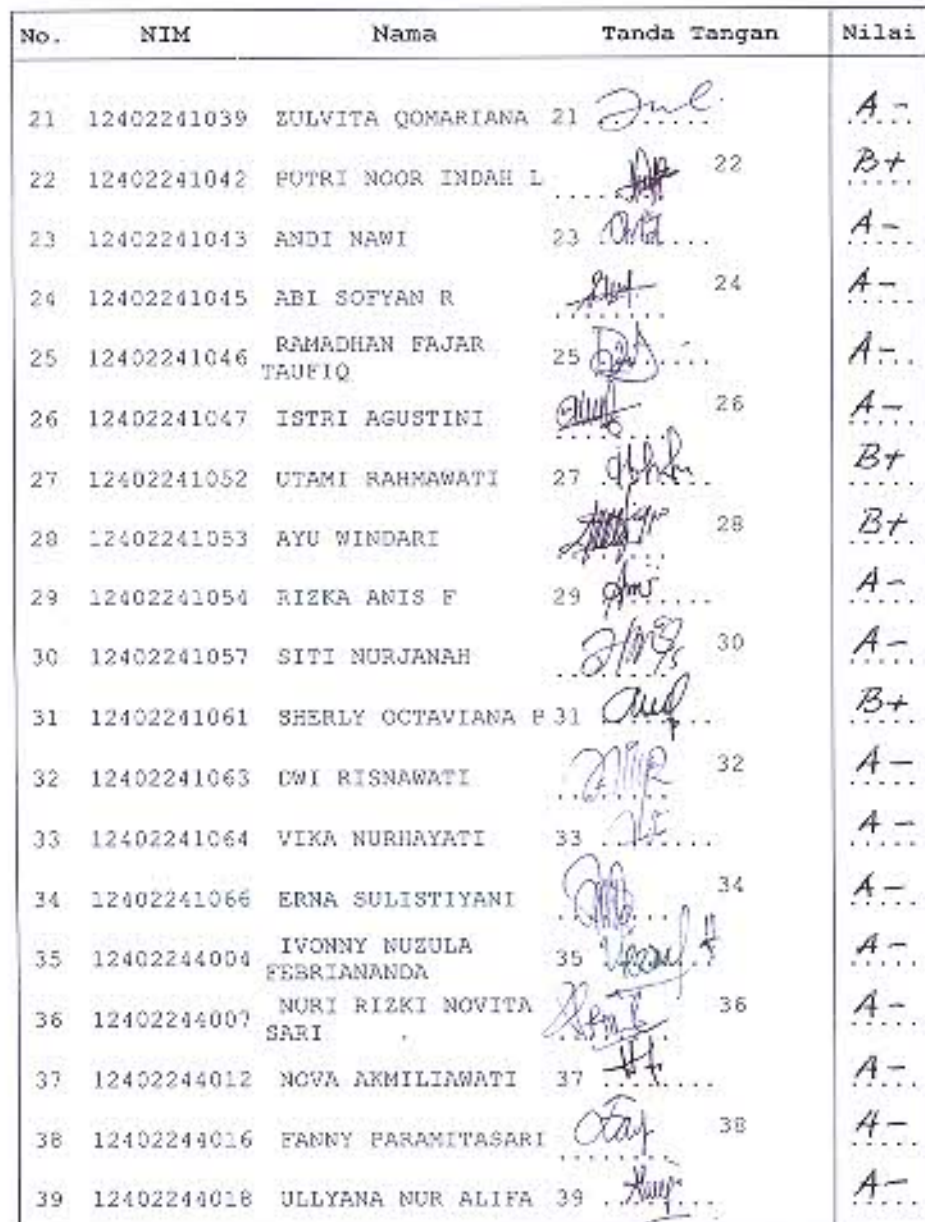 No. NIM Nama Tanda Tangan Nilai
21 12402241039 ZULVITA QOMARIANA 21 ........ A -
22 12402241042 PUTRI NOOR INDAH L ........ 22 B+
23 12402241043 ANDI NAWI 23 ........ A -
24 12402241045 ABI SOFYAN R ........ 24 A -
25 12402241046 RAMADHAN FAJAR
TAUFIQ 25 ........ A -
26 12402241047 ISTRI AGUSTINI ........ 26 A -
27 12402241052 UTAMI RAHMAWATI 27 ........ B+
28 12402241053 AYU WINDARI ........ 28 B+
29 12402241054 RIZKA ANIS F 29 ........ A -
30 12402241057 SITI NURJANAH ........ 30 A -
31 12402241061 SHERLY OCTAVIANA P 31 ........ B+
32 12402241063 DWI RISNAWATI ........ 32 A -
33 12402241064 VIKA NURHAYATI 33 ........ A -
34 12402241066 ERNA SULISTIYANI ........ 34 A -
35 12402244004 IVONNY NUZULA
FEBRIANANDA 35 ........ A -
36 12402244007 NURI RIZKI NOVITA
SARI ........ 36 A -
37 12402244012 NOVA AKMILIAWATI 37 ........ A -
38 12402244016 FANNY PARAMITASARI ........ 38 A -
39 12402244018 ULLYANA NUR ALIFA 39 ........ A -